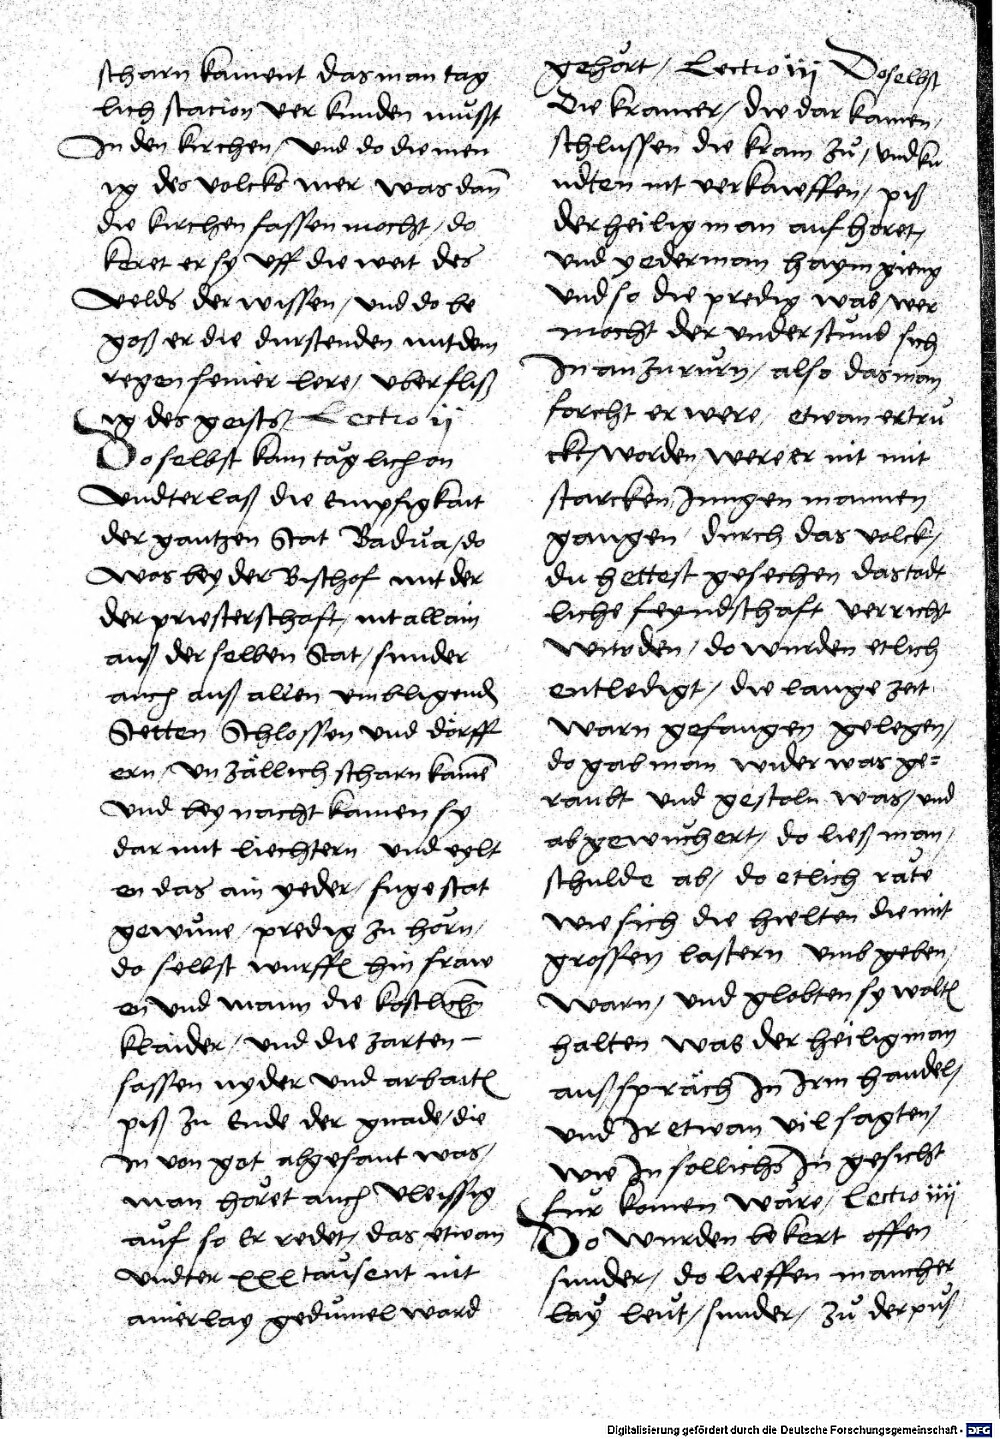 scharn kament das man tag
lich stacion ver kunden můsst
In den kirchen / Und do die men
ig des volcks mer was dan̄
die kirchen fassen mocht / do
keret er sy Uff die weit des
velds der wissen / und do be
goß er die durstenden mit dem
regen seiner lere / uberfliß
ig des geists / Lectio ij
Doselbst kam täglich on
Undterlaß die Empsigkait
der gantzen Stat Badŭa / do
Was bey der Bischof mit der
der priesterschaft / nit allain
auß der selben Stat / sunder
auch auß allen umbligendē
Stetten Schlossen und dörff
ern / Un zällich scharn kamē
Und bey nacht kamen sy
dar mit liechtern und eylt
en das ain yeder / fuge stat
gewŭne / predig zu hörn /
do selbst wurffē hin fraw
en und mann die kostlichn̄
klaider / und die zarten –
fassen nyder und arbaitē
piß zu Ende der gnade / die
In von got abgesant was /
man höret auch vleissig
aŭf so Er redet / das etwan
undter xxx taŭsent nit
ainerlay gedŭmel ward
gehört / Lectio iij Doselbst
Die kramer / die dar kamen /
schlussen die kram zŭ / und ku
ndten nit verkaweffen / piß
der heilig man aufhöret /
und yederman haym gieng
Und so die predig was / wer
mocht der understŭnd sich
In an zu rurn / also das man
forcht er were / etwan ertrŭ
ckt / worden were er nit mit
starcken Jungen mannen
gangen / durch das volck /
du hettest gesechen das todt
liche feyndschaft verricht
wurden / do wurden etlich
entledigt / die lange zeit
warn gefangen gelegen /
do gab man wider was ge=
raubt und gestoln was / und
abgewŭchert / do ließ man /
schulde ab / do etlich räte
wie sich die hielten die mit
grossen lastern umb geben /
warn / und globten sy woltē
halten was der heilig man
auß spräch In Irm handel /
und Ir etwan vil sagten /
wie In sollichs In gesicht
fur komen wäre / Lectio iiij
Do wurden bekert offen
sunder / do lieffen mancher
lay leŭt / sunder / zŭ der pŭß
Digitalisierung gefördert durch die Deutsche Forschungsgemeinschaft - DFG